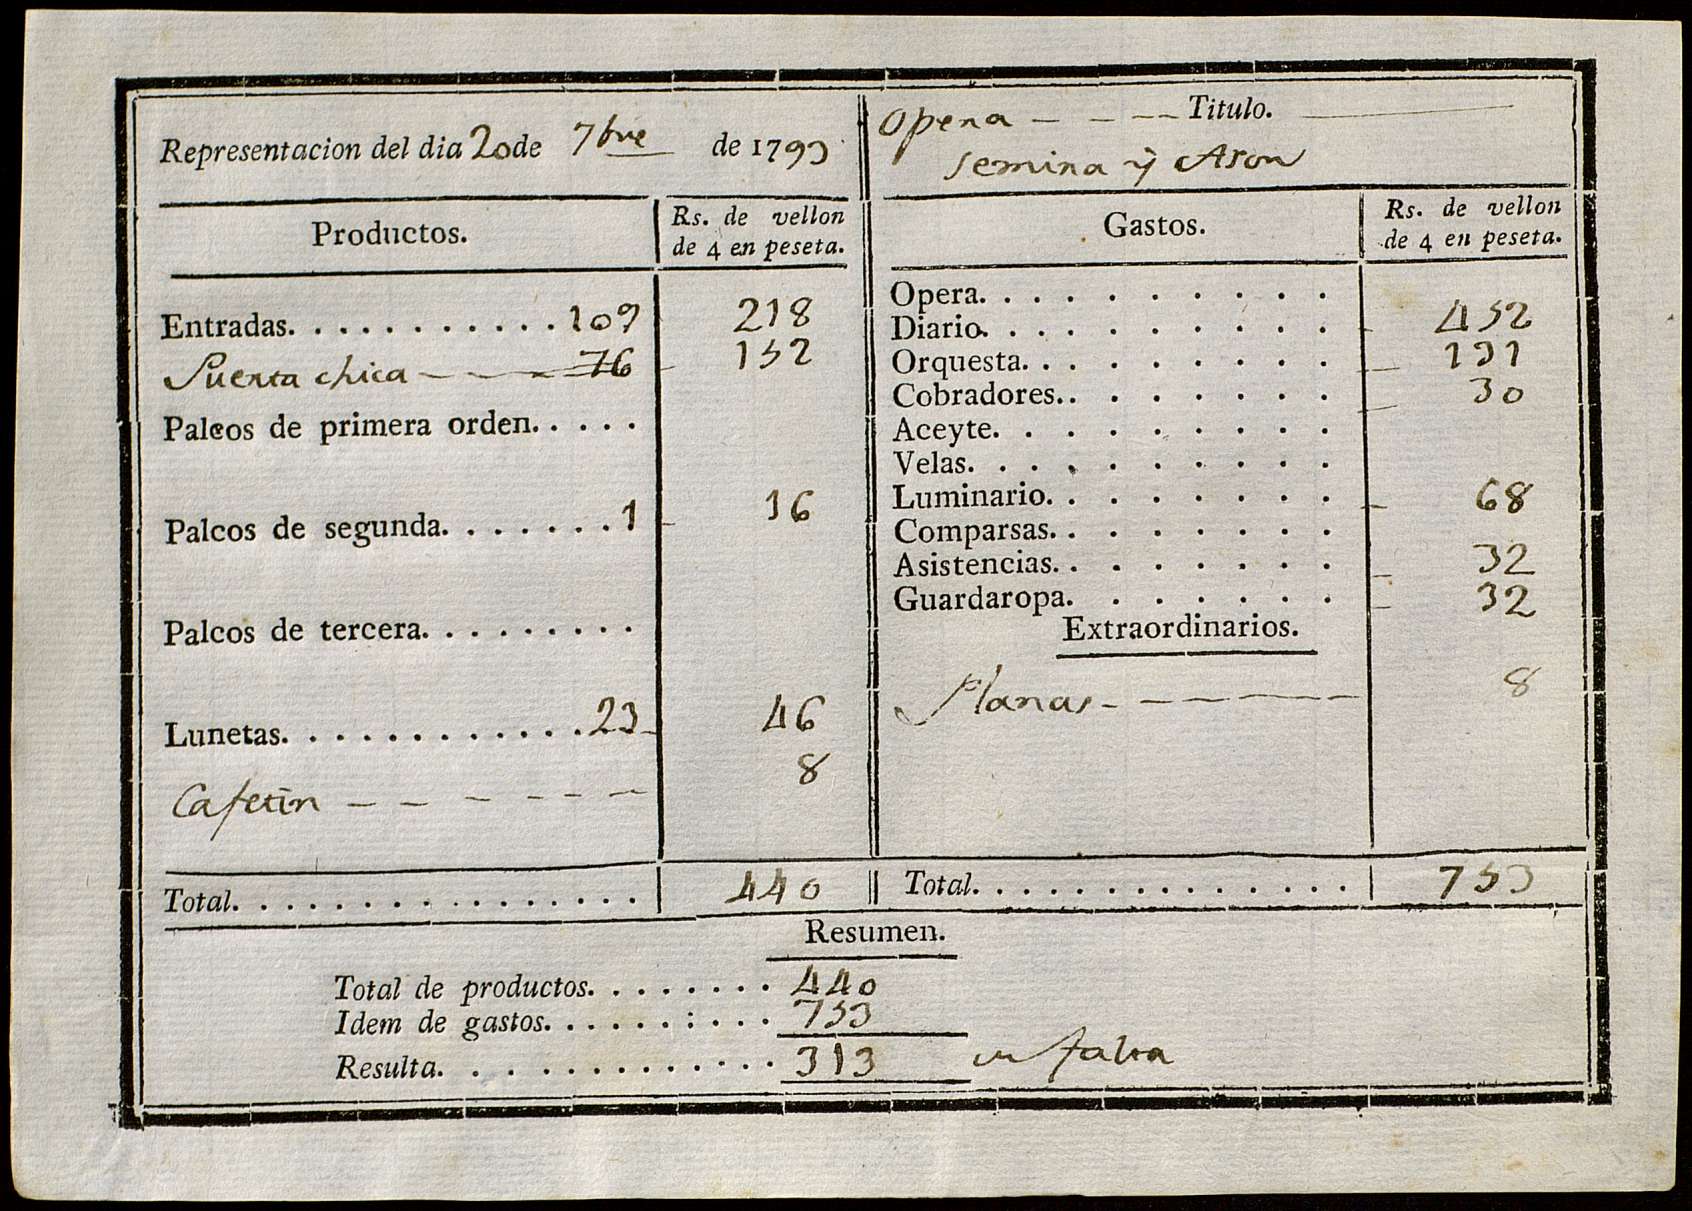 Representacion del dia 20 de 7bre de 1793
Opera Titulo.
semira y Asor
Productos.
Rs. de vellon
de 4 en peseta.
Entradas. 109 218
Puerta chica 76 152
Palcos de primera orden.
Palcos de segunda. 1 16
Palcos de tercera.
Lunetas. 23 46
Cafetin 8
Total. 440
Gastos.
Rs. de vellon
de 4 en peseta.
Opera.
Diario. 452
Orquesta. 131
Cobradores. 30
Aceyte.
Velas.
Luminario. 68
Comparsas.
Asistencias. 32
Guardaropa. 32
Extraordinarios.
Planas 8
Total. 753
Resumen.
Total de productos. 440
Idem de gastos. 753
Resulta. 313 en falta